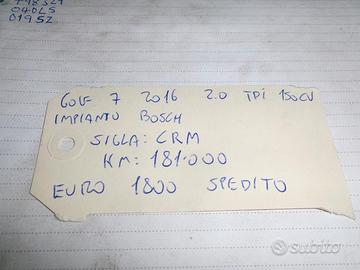 040LS
0195Z
GOLF 7 2016 2.0 TDI 150CV
IMPIANTO BOSCH
SIGLA: CRM
KM: 181.000
EURO 1800 SPEDITO
subito